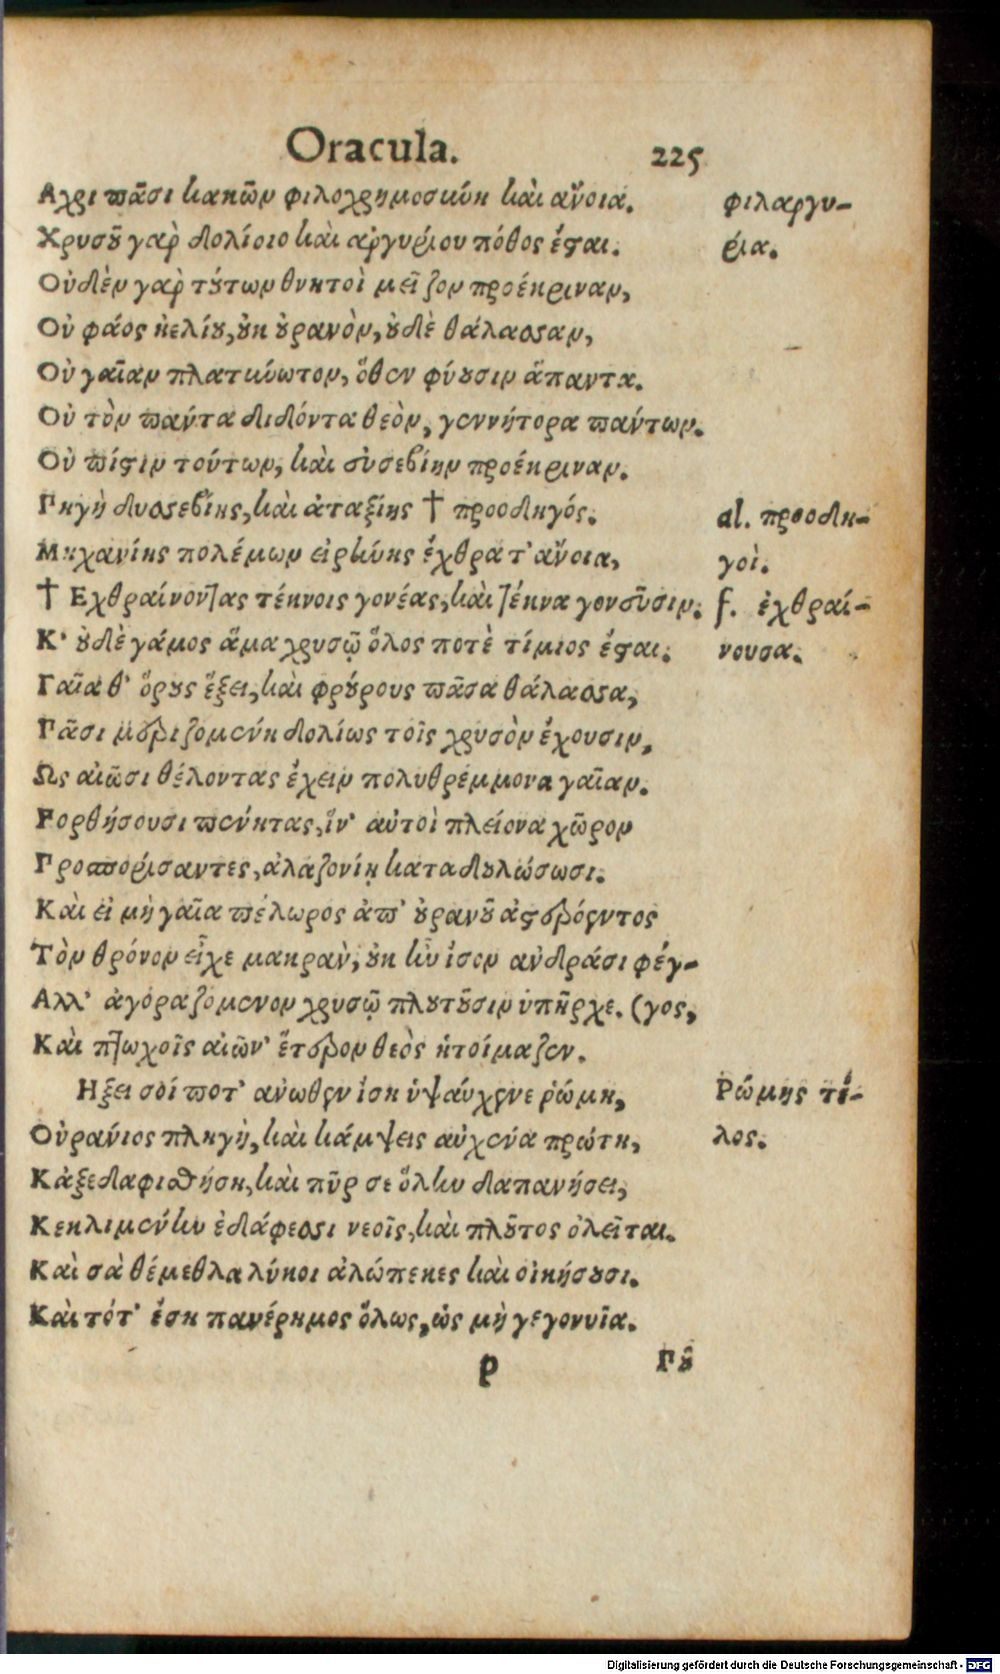 Oracula. 225
Αχρι πᾶσι κακῶν φιλοχρημοσύνη καὶ ἄνοια. φιλαργυ-
Χρυσοῦ γὰρ δολίοιο καὶ ἀργυρίου πόθος ἔσται. ρία.
Οὐδὲν γὰρ τούτων θνητοὶ μεῖζον προέκριναν,
Οὐ φάος ἠελίου, οὐκ οὐρανὸν, οὐδὲ θάλασσαν,
Οὐ γαῖαν πλατύνωτον, ὅθεν φύουσιν ἅπαντα.
Οὐ τὸν πάντα διδόντα θεὸν, γεννήτορα πάντων.
Οὐ πίστιν τούτων, καὶ εὐσεβίην προέκριναν.
Πηγὴ δυσσεβίης, καὶ ἀταξίης † προοδηγός. al. προοδη-
Μηχανίης πολέμων εἰρήνης ἔχθρα τ' ἄνοια, γοὶ.
† Εχθραίνοντας τέκνοις γονέας, καὶ τέκνα γονεῦσιν. f. ἐχθραί-
Κ' οὐδὲ γάμος ἅμα χρυσῷ ὅλος ποτὲ τίμιος ἔσται. νουσα.
Γαῖα θ' ὅρους ἕξει, καὶ φρούρους πᾶσα θάλασσα,
Πᾶσι μεριζομένη δολίως τοῖς χρυσὸν ἔχουσιν,
Ως αἰῶσι θέλοντας ἔχειν πολυθρέμμονα γαῖαν.
Πορθήσουσι πένητας, ἵν' αὐτοὶ πλείονα χῶρον
Προσπορίσαντες, ἀλαζονίῃ καταδουλώσωσι.
Καὶ εἰ μὴ γαῖα πέλωρος ἀπ' οὐρανοῦ ἀστερόεντος
Τὸν θρόνον εἶχε μακρὰν, οὐκ ἦν ἴσον ἀνδράσι φέγ-
Αλλ' ἀγοραζόμενον χρυσῷ πλουτοῦσιν ὑπῆρχε. (γος,
Καὶ πτωχοῖς αἰῶν' ἕτερον θεὸς ἡτοίμαζεν.
Ηξει σοί ποτ' ἄνωθεν ἴση ὑψαύχενε ῥώμη, Ρώμης τέ-
Οὐράνιος πληγὴ, καὶ κάμψεις αὐχένα πρώτη, λος.
Κἀξεδαφισθήσῃ, καὶ πῦρ σε ὅλην δαπανήσει,
Κεκλιμένην ἐδάφεσσι νεοῖς, καὶ πλοῦτος ὀλεῖται.
Καὶ σὰ θέμεθλα λύκοι ἀλώπεκες καὶ οἰκήσουσι.
Καὶ τότ' ἔσῃ πανέρημος ὅλως, ὡς μὴ γεγονυῖα.
p Ποῦ
Digitalisierung gefördert durch die Deutsche Forschungsgemeinschaft - DFG